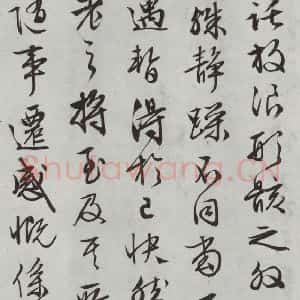 託放浪形骸之外
殊靜躁不同當
遇暫得於己快然
老之將至及其所
隨事遷感慨係
Shufawang.CN